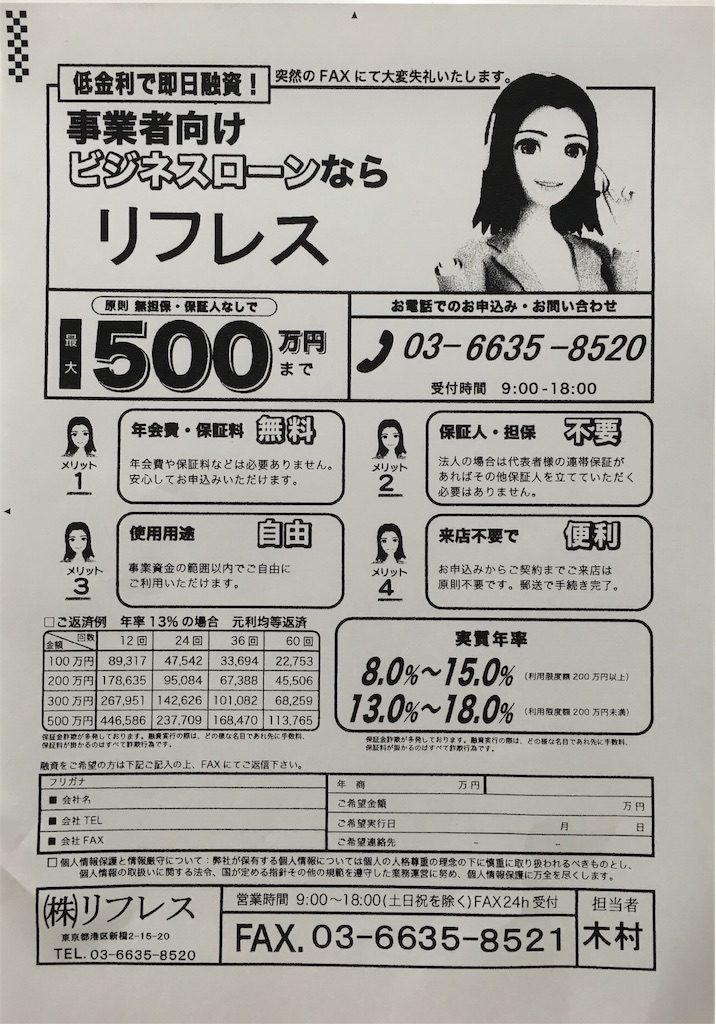 低金利で即日融資！
突然のFAXにて大変失礼いたします。
事業者向け
ビジネスローンなら
リフレス
原則 無担保・保証人なしで
最大
500万円まで
お電話でのお申込み・お問い合わせ
03-6635-8520
受付時間 9:00-18:00
メリット1
年会費・保証料 無料
年会費や保証料などは必要ありません。
安心してお申込みいただけます。
メリット2
保証人・担保 不要
法人の場合は代表者様の連帯保証が
あればその他保証人を立てていただく
必要はありません。
メリット3
使用用途 自由
事業資金の範囲以内でご自由に
ご利用いただけます。
メリット4
来店不要で 便利
お申込みからご契約までご来店は
原則不要です。郵送で手続き完了。
□ご返済例 年率13%の場合 元利均等返済
金額 回数 12回 24回 36回 60回
100万円 89,317 47,542 33,694 22,753
200万円 178,635 95,084 67,388 45,506
300万円 267,951 142,626 101,082 68,259
500万円 446,586 237,709 168,470 113,765
保証金詐欺が多発しております。融資実行の際は、どの様な名目であれ先に手数料、
保証料が掛かるのはすべて詐欺行為です。
実質年率
8.0%〜15.0%（利用限度額200万円以上）
13.0%〜18.0%（利用限度額200万円未満）
保証金詐欺が多発しております。融資実行の際は、どの様な名目であれ先に手数料、
保証料が掛かるのはすべて詐欺行為です。
融資をご希望の方は下記ご記入の上、FAXにてご返信下さい。
フリガナ
■ 会社名
■ 会社TEL
■ 会社FAX
年 商 万円
ご希望金額 万円
ご希望実行日 月 日
ご希望連絡先 - -
□個人情報保護と情報厳守について：弊社が保有する個人情報については個人の人格尊重の理念の下に慎重に取り扱われるべきものとし、
個人情報の取扱いに関する法令、国が定める指針その他の規範を遵守した業務運営に努め、個人情報保護に万全を尽くします。
㈱リフレス
東京都港区新橋2-15-20
TEL. 03-6635-8520
営業時間 9:00〜18:00(土日祝を除く)FAX24h受付
FAX. 03-6635-8521
担当者
木村